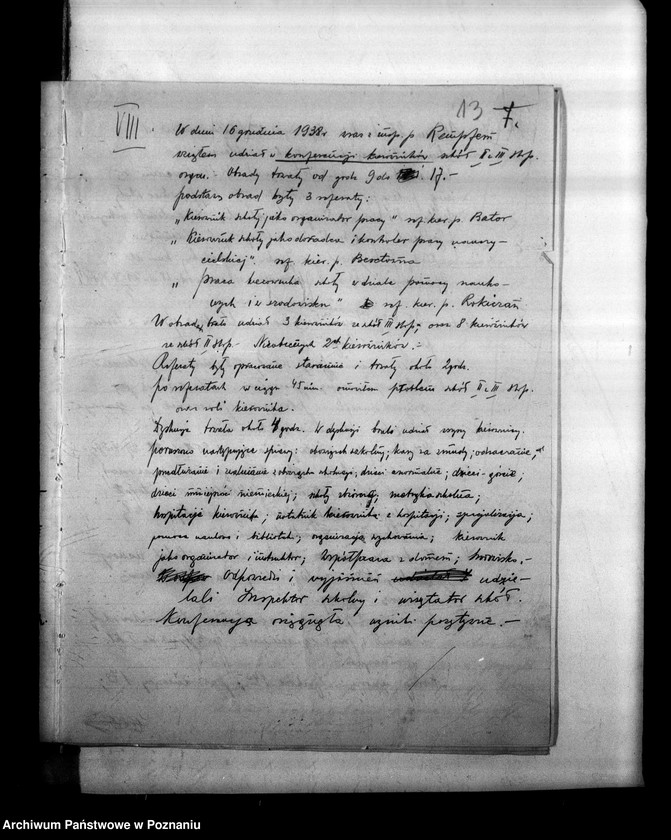 13 7.
VIII
W dniu 16 grudnia 1938 r wraz z insp. p. Rempfem
wziąłem udział w konferencji kierowników szkół II i III stp.
organ. Obrady trwały od godz 9 do 17.-
podstawą obrad były 3 referaty:
„Kierownik szkoły jako organizator pracy" ref. kier. p. Bator
„Kierownik szkoły jako doradca i kontroler pracy nauczy-
cielskiej". ref. kier. p.
„praca kierownika szkoły w dziale pomocy nauko-
wych i w środowisku" ref. kier. p.
W obradach brało udział 3 kierowników ze szkół III stp; oraz 8 kierowników
ze szkół II stp.- Nieobecnych 2-ch kierowników.-
Referaty były opracowane starannie i trwały około 2 godz.
po referatach w ciągu 45 min. omówiłem problem szkół II i III stp.
oraz roli kierownika.
Dyskusja trwała około 4 godz. W dyskusji brali udział wszyscy kierownicy.
poruszono następujące sprawy: obowiązek szkolny; kary za
dzieci anormalne; dzieci
dzieci mniejszości niemieckiej; szkoły zbiorcze; metryka szkolna;
hospitacje kierownika; z hospitacji; specjalizacja;
pomoce naukowe i bibliotek; organizacja wychowania; kierownik
jako organizator i instruktor; współpraca z domem; środowisko.-
Odpowiedzi i wyjaśnień udzie-
lali Inspektor szkolny i wizytator szkół.
Konferencja osiągnęła wyniki pozytywne.-
Archiwum Państwowe w Poznaniu